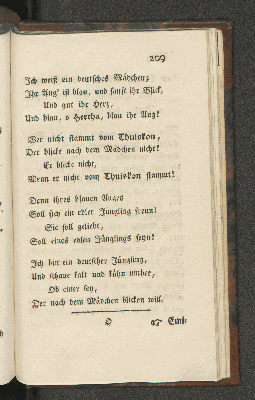 209
Ich weiß ein deutsches Mädchen;
Ihr Aug' ist blau, und sanft ihr Blick,
Und gut ihr Herz,
Und blau, o Hertha, blau ihr Aug'!
Wer nicht stammt vom Thuiskon,
Der blicke nach dem Mädchen nicht!
Er blicke nicht,
Wenn er nicht vom Thuiskon stammt!
Denn ihres blauen Auges
Soll sich ein edler Jüngling freun!
Sie soll geliebt,
Soll eines edlen Jünglings seyn!
Ich bin ein deutscher Jüngling,
Und schaue kalt und kühn umher,
Ob einer sey,
Der nach dem Mädchen blicken will.
O